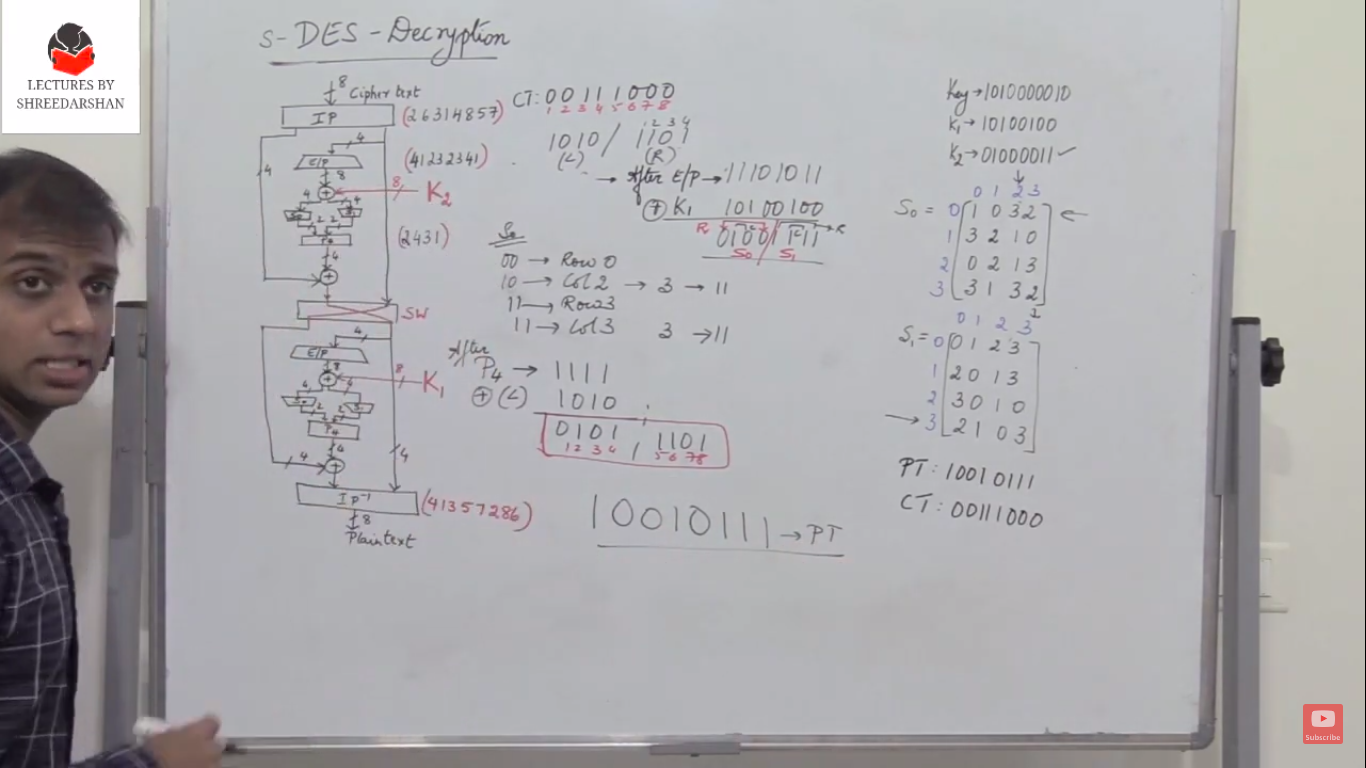 LECTURES BY
SHREEDARSHAN
S-DES-Decryption
8 Cipher text
IP
(26314857)
4
4
E/P
(41232341)
8
8
K2
4
4
S0
2
2
P4
(2431)
4
SW
4
E/P
8
8
K1
4
4
2
2
P4
4
4
4
IP-1
(41357286)
8
Plaintext
CT: 00111000
1 2 3 4 5 6 7 8
1 2 3 4
1010 / 1101
(L) (R)
→ After E/P → 11101011
⊕ K1 10100100
R 0100/1111 R
S0 / S1
S0
00 → Row 0
10 → Col 2 → 3 → 11
11 → Row 3
11 → Col 3 3 → 11
After
P4 → 1111
⊕ (L) 1010
0101 , 1101
1 2 3 4 / 5 6 7 8
10010111 → PT
Key → 1010000010
K1 → 10100100
K2 → 01000011 ✓
0 1 2 3
S0 = 0 1 0 3 2 ←
1 3 2 1 0
2 0 2 1 3
3 3 1 3 2
0 1 2 3
S1 = 0 0 1 2 3
1 2 0 1 3
2 3 0 1 0
→ 3 2 1 0 3
PT: 10010111
CT: 00111000
Subscribe